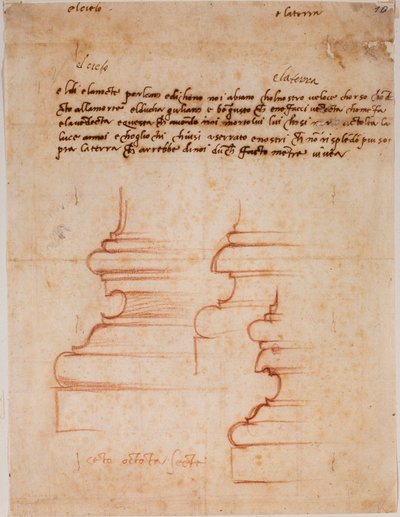 el cielo e la terra 10
el cielo e la terra
e ldi e lanocte parlano e dichono noi abiano cholnostro veloce chorso chodo
cto allamorte elducha giuliano e be giusto che e ne facci vedecta chome fa
e lavedecta e questa che avendo noi morto lui lui chosi morto a tolta la
luce a noi e chogli ochi chiusi a serrato e nostri che no risplēdo piu so
pra la terra che arrebbe di noi duche facto mētre vivea
ceto octota secte